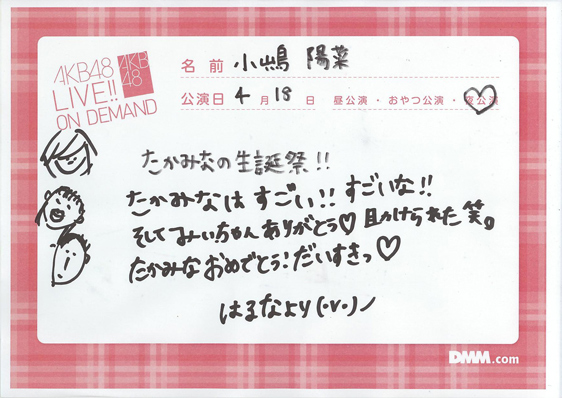 AKB48
LIVE!!
ON DEMAND
AKB
48
名前 小嶋 陽菜
公演日 4月18日 昼公演・おやつ公演・夜公演
たかみなの生誕祭!!
たかみなは すごい!! すごいな!!
そしてみいちゃんありがとう♡ 助けられた笑。
たかみなおめでとう!だいすきっ♡
はるなより(・v・)ノ
DMM.com